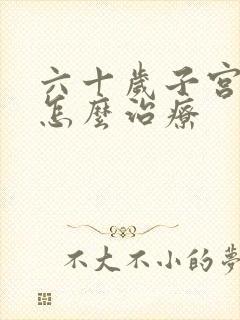 六十歲子宮
怎麼治療
不大不小的夢